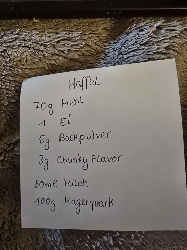 Waffel
70g Mehl
1 Ei
6g Backpulver
3g Chunky Flavor
50ml Milch
100g Magerquark